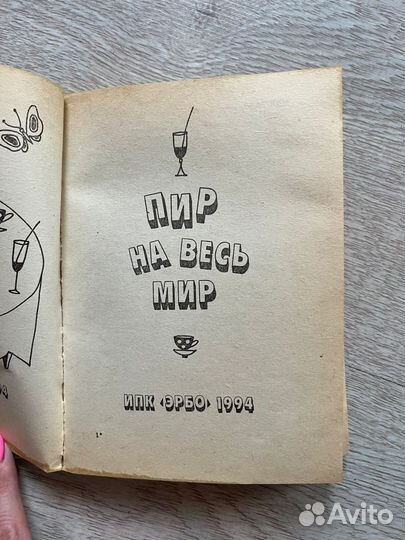 ПИР
НА ВЕСЬ
МИР
ИПК «ЭРБО» 1994
1*
Avito